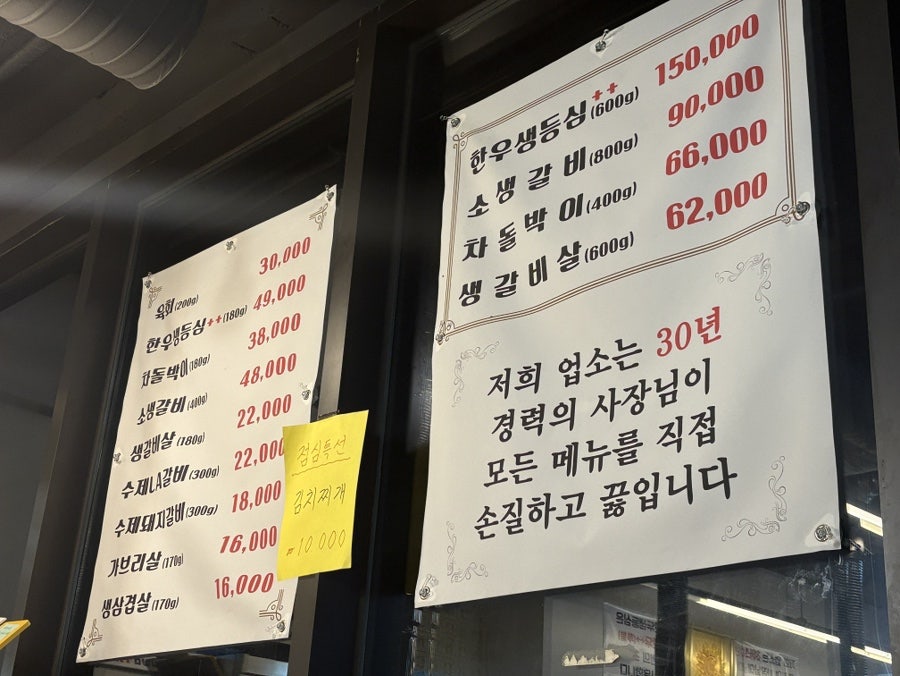 육회(200g) 30,000
한우생등심++(180g) 49,000
차돌박이(180g) 38,000
소생갈비(400g) 48,000
생갈비살(180g) 22,000
수제LA갈비(300g) 22,000
수제돼지갈비(300g) 18,000
가브리살(170g) 16,000
생삼겹살(170g) 16,000
점심특선
김치찌개
10000
한우생등심++(600g) 150,000
소생갈비(800g) 90,000
차돌박이(400g) 66,000
생갈비살(600g) 62,000
저희 업소는 30년
경력의 사장님이
모든 메뉴를 직접
손질하고 끓입니다